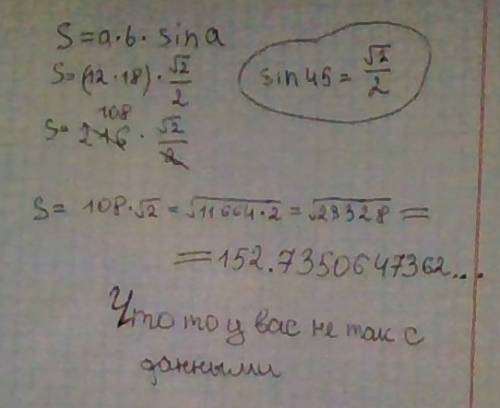 S=a·b·sina
S=(12·18)·√2/2
sin45=√2/2
108
S=216·√2/2
S= 108·√2=√11664·2=√23328=
=152.7350647362...
Что то у вас не так с
данными